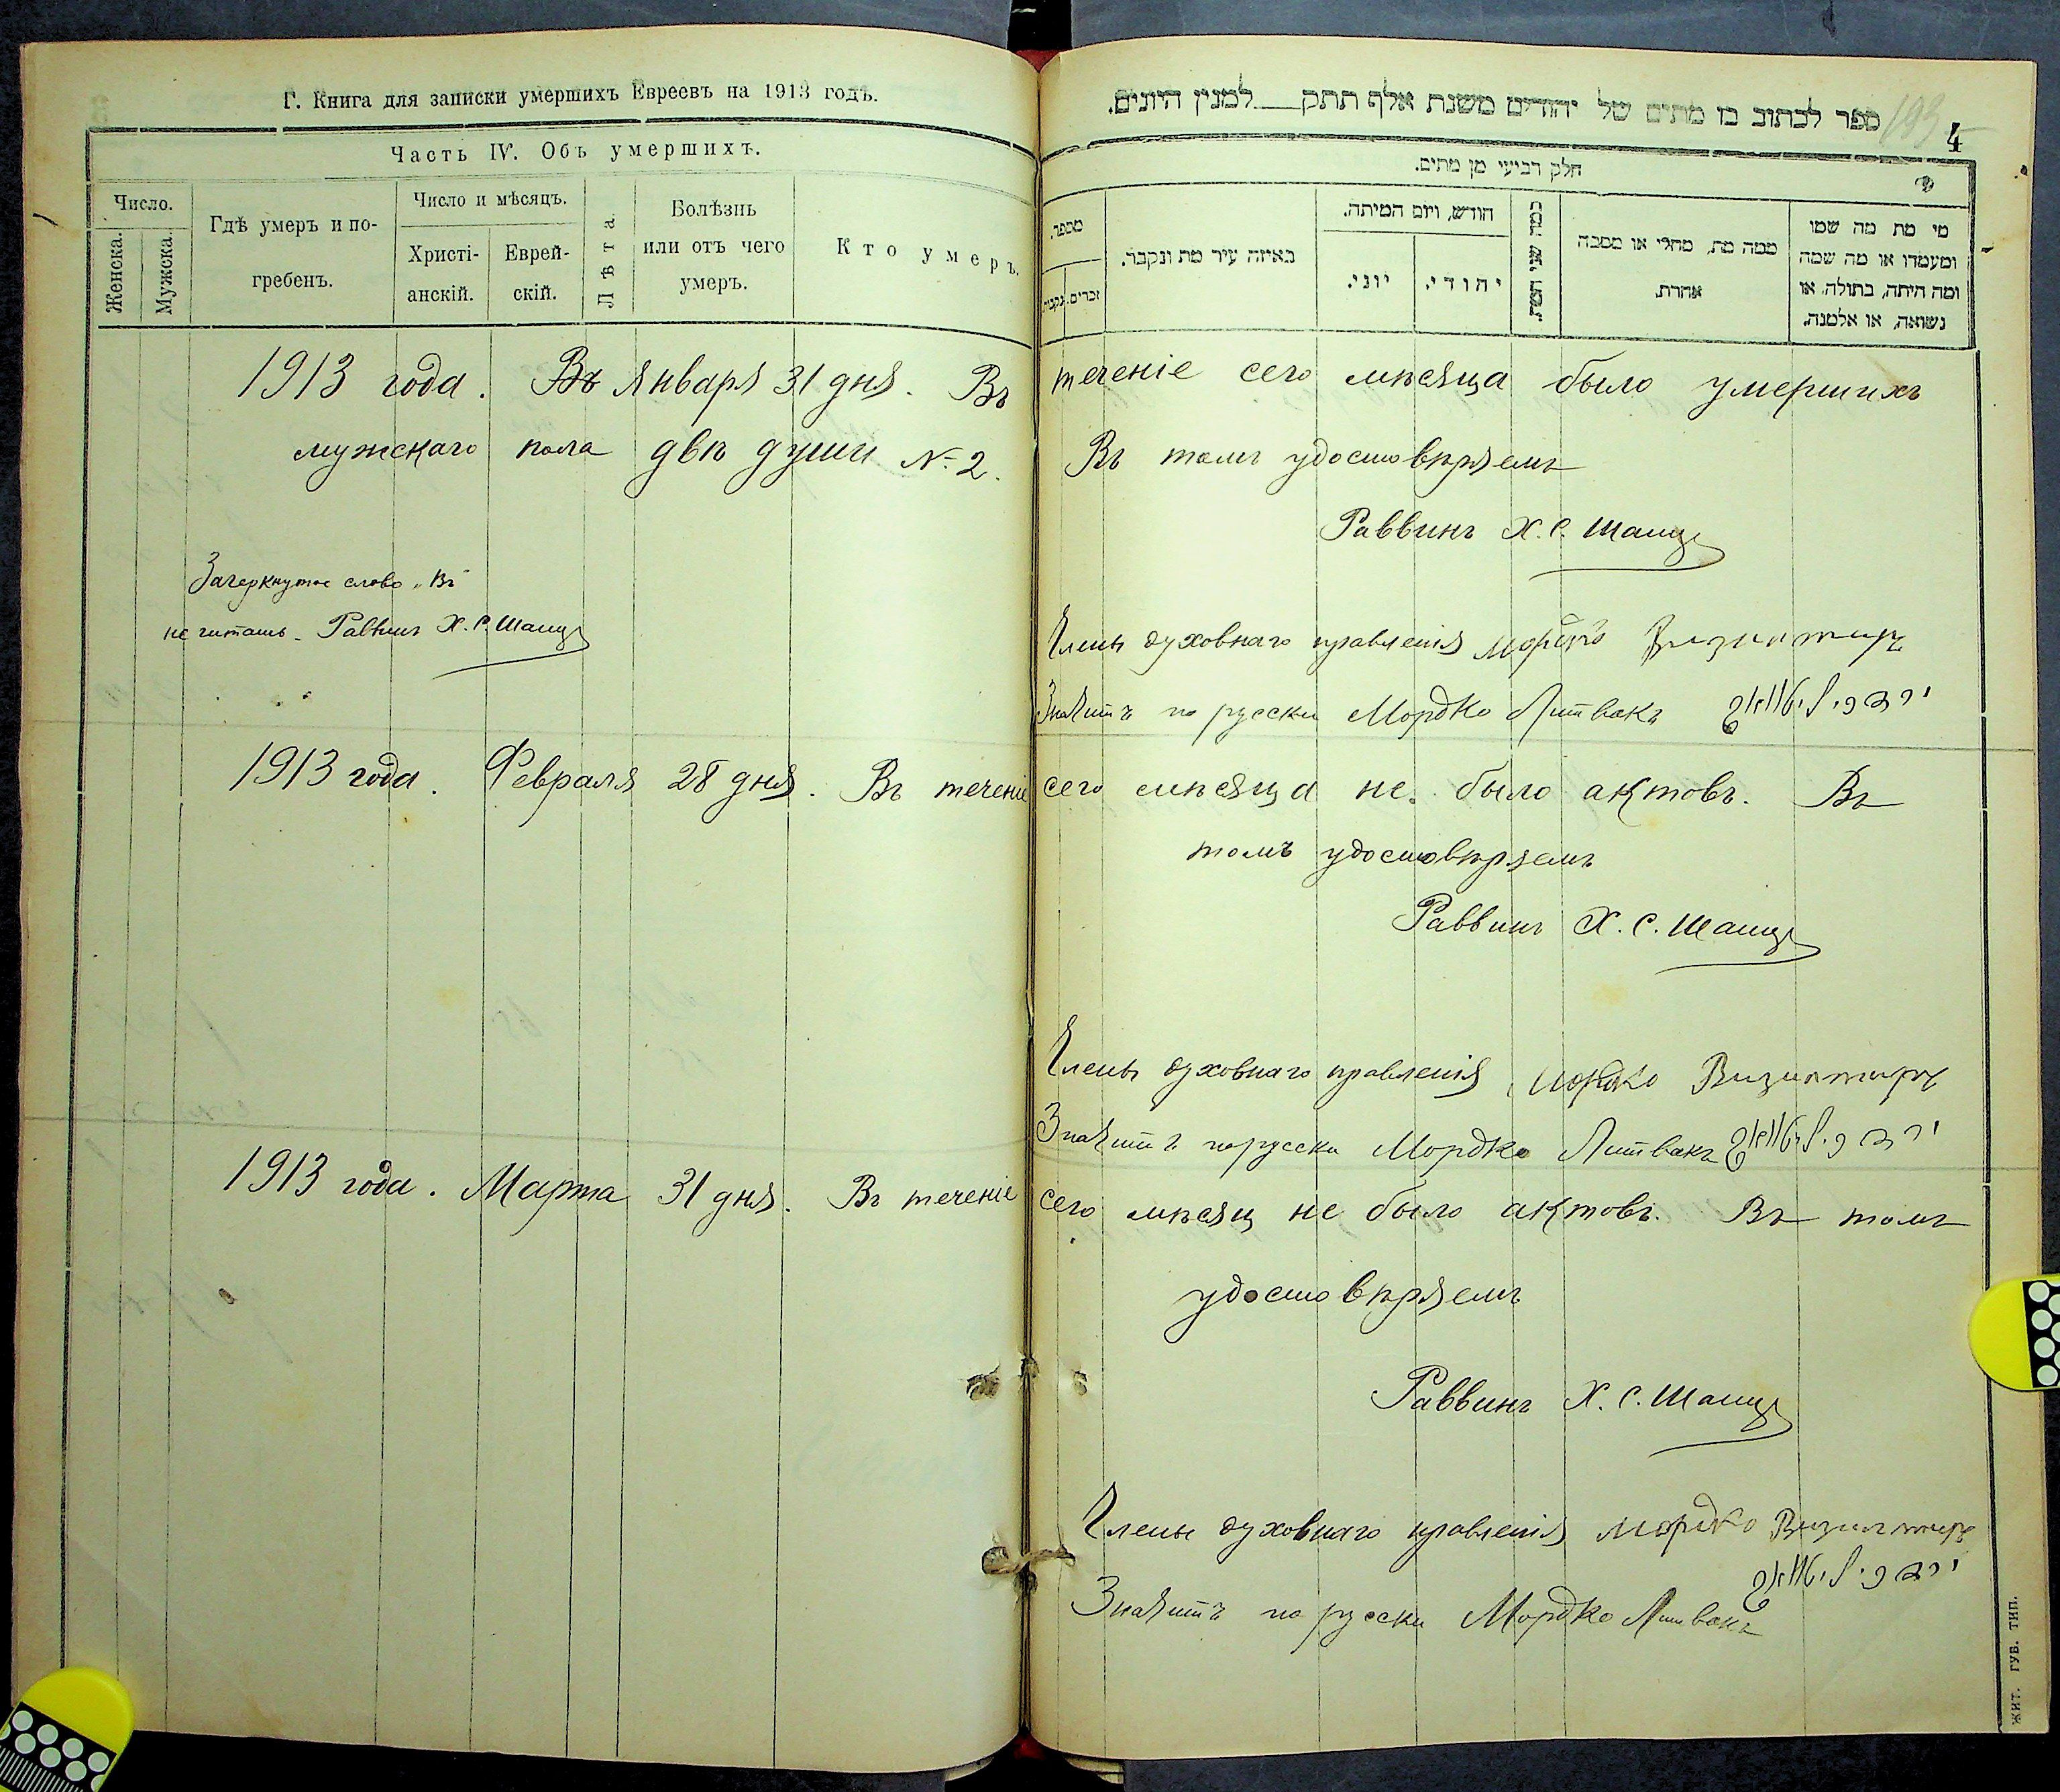 Г. Книга для записки умершихъ Евреевъ на 1913 годъ.
Часть IV. Объ умершихъ.
Число.
Женска.
Мужска.
Гдѣ умеръ и по-
гребенъ.
Число и мѣсяцъ.
Христі-
анскій.
Еврей-
скій.
Лѣта.
Болѣзнь
или отъ чего
умеръ.
Кто умеръ.
ספר לכתוב בו מתים של יהודים משנת אלף תתק למנין היונים.
193
4
חלק רביעי מן מתים.
מספר.
זכרים.
נקבות.
באיזה עיר מת ונקבר.
חודש, ויום המיתה.
יוני.
יהודי.
ממה מת, מחלי או מסבה
אחרת.
מי מת מה שמו
ומעמדו או מה שמה
ומה היתה, בתולה, או
נשואה, או אלמנה.
1913 года. Въ Января 31 дня. Въ теченіе сего мѣсяца было умершихъ
мужскаго пола двѣ души № 2. Въ томъ удостовѣряемъ
Раввинъ Х. С. Шапиро
Зачеркнутое слово „Въ"
не читать. Раввинъ Х. С. Шапиро
Члены духовнаго правленія Мордко Визилтиръ
Значитъ по русски Мордко Литвакъ
1913 года. Февраля 28 дня. Въ теченіе сего мѣсяца не было актовъ. Въ
томъ удостовѣряемъ
Раввинъ Х. С. Шапиро
Члены духовнаго правленія Мордко Визилтиръ
Значитъ по русски Мордко Литвакъ
1913 года. Марта 31 дня. Въ теченіе сего мѣсяц не было актовъ. Въ томъ
удостовѣряемъ
Раввинъ Х. С. Шапиро
Члены духовнаго правленія Мордко Визилтиръ
Значитъ по русски Мордко Литвакъ
ЖИТ. ГУБ. ТИП.